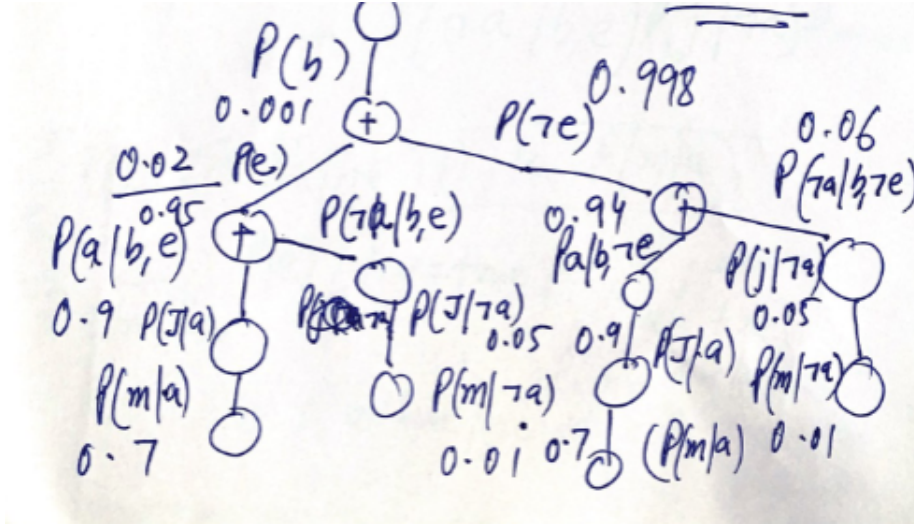 P(b)
0.001
0.998
P(¬e)
0.06
P(¬a|b,¬e)
0.02 P(e)
0.95
P(a|b,e)
P(¬a|b,e)
0.94
Pa|b,¬e
P(j|¬a)
0.05
0.9 P(J|a)
P(J|¬a)
0.05
0.9
P(J|a)
P(m|¬a)
P(m|a)
0.7
P(m|¬a)
0.01
0.7
(P(m|a)
0.01